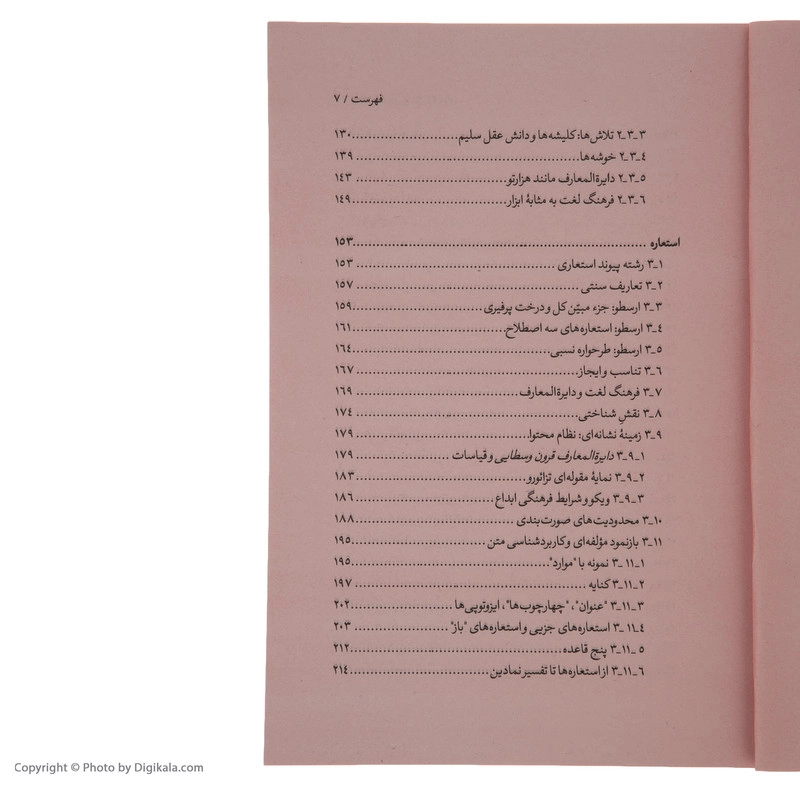 فهرست / ۷
۲_۳_۳ تلاش‌ها؛ کلیشه‌ها و دانش عقل سلیم..........................۱۳۰
۲_۳_٤ خوشه‌ها....................................................... ۱۳۹
۲_۳_٥ دایرةالمعارف مانند هزارتو.................................... ۱٤۳
۲_۳_٦ فرهنگ لغت به مثابۀ ابزار.....................................۱٤۹
استعاره ......................................................................۱٥۳
۳_۱ رشته پیوند استعاری ................................................ ۱٥۳
۳_۲ تعاریف سنتی ...................................................... ۱٥۷
۳_۳ ارسطو: جزء مبیّن کل و درخت پرفیری...............................۱٥۹
۳_٤ ارسطو: استعاره‌های سه اصطلاح.....................................۱٦۱
۳_٥ ارسطو: طرحواره نسبی................................................۱٦٤
۳_٦ تناسب و ایجاز...................................................... ۱٦۷
۳_۷ فرهنگ لغت و دایرةالمعارف........................................ ۱٦۹
۳_۸ نقشِ شناختی........................................................۱۷٤
۳_۹ زمینۀ نشانه‌ای: نظام محتوا.......................................... ۱۷۹
۳_۹_۱ دایرةالمعارف قرون وسطایی و قیاسات ....................... ۱۷۹
۳_۹_۲ نمایۀ مقوله‌ای تزائورو.........................................۱۸۳
۳_۹_۳ ویکو و شرایط فرهنگی ابداع .................................. ۱۸٦
۳_۱۰ محدودیت‌های صورت‌بندی .......................................۱۸۸
۳_۱۱ بازنمود مؤلفه‌ای و کاربردشناسی متن ................................۱۹٥
۳_۱۱_۱ نمونه با "موارد"................................................۱۹٥
۳_۱۱_۲ کنایه ........................................................ ۱۹۷
۳_۱۱_۳ "عنوان"، "چهارچوب‌ها"، ایزوتوپی‌ها .........................۲۰۲
۳_۱۱_٤ استعاره‌های جزیی و استعاره‌های "باز" ....................... ۲۰۳
۳_۱۱_٥ پنج قاعده....................................................۲۱۲
۳_۱۱_٦ از استعاره‌ها تا تفسیر نمادین..................................۲۱٤
Copyright © Photo by Digikala.com